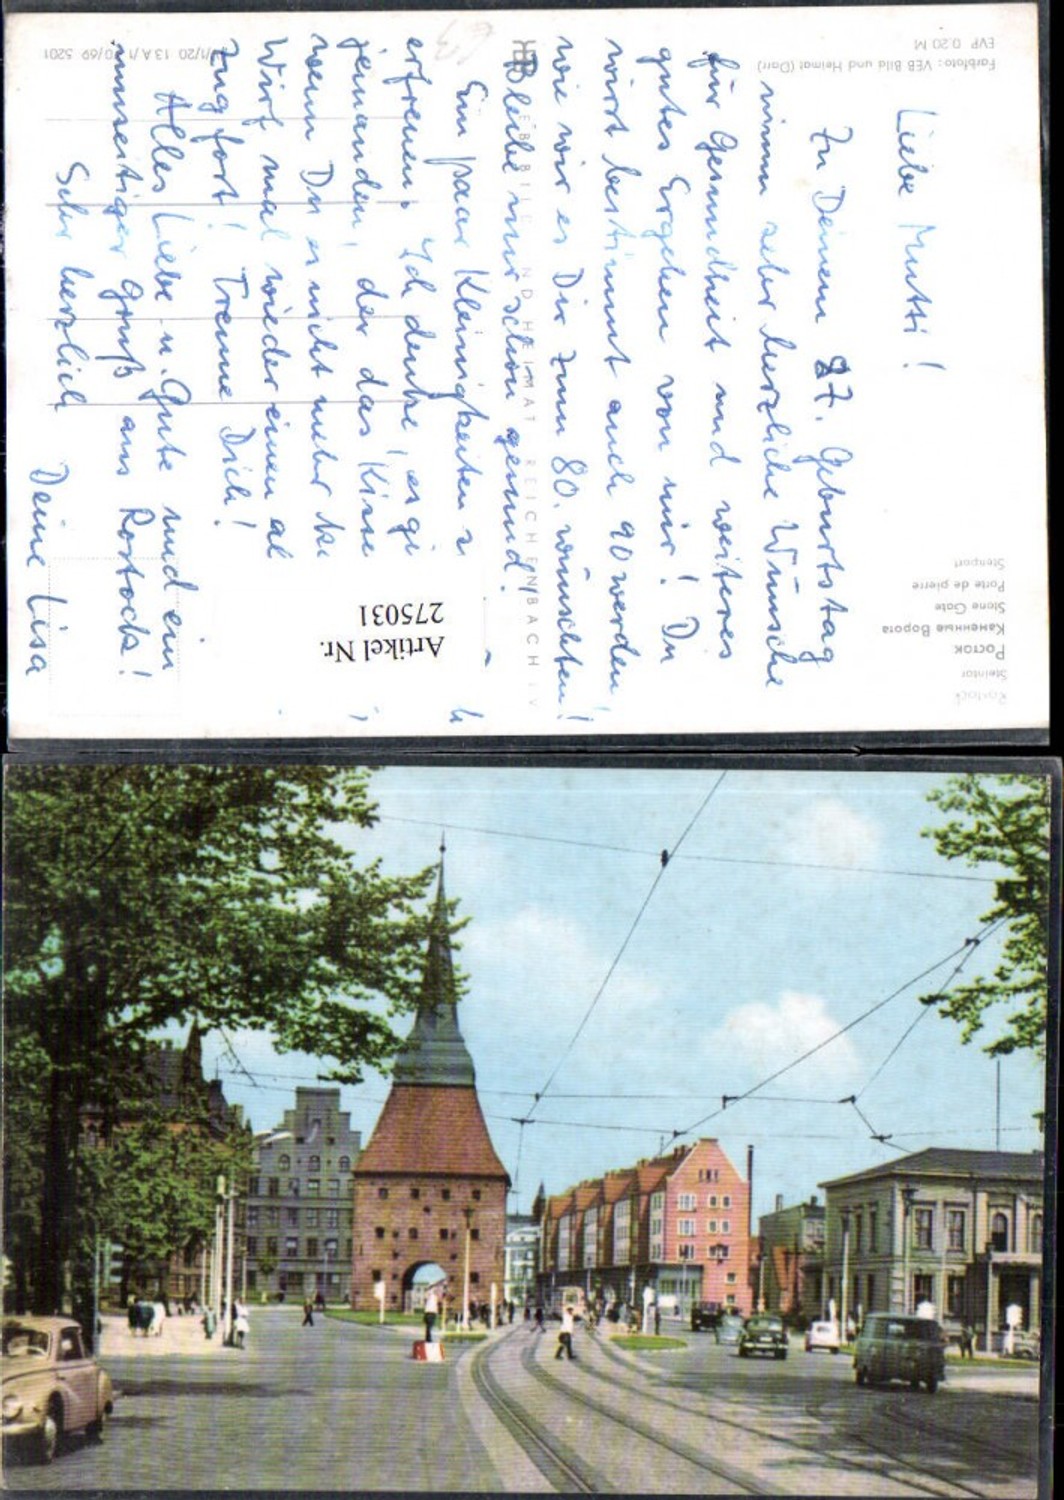 Rostock
Steintor
Росток
Каменные Ворота
Stone Gate
Porte de pierre
Stenport
Liebe Mutti!
Zu Deinem 87. Geburtstag
nimm sehr herzliche Wünsche
für Gesundheit und weiteres
gutes Ergehen von mir! Du
wirst bestimmt auch 90 werden,
wie wir es Dir zum 80. wünschten!
Bleibe nur schön gesund!
Ein paar Kleinigkeiten
erfreuen. Ich denke, es gi
jemanden, der das Kisse
wenn Du es nicht mehr
Wirf mal wieder einen al
zug fort! Trenne Dich!
Alles Liebe u. Gute und ein
umseitiger Gruß aus Rostock!
Sehr herzlich
Deine Lisa
VEB BILD UND HEIMAT REICHENBACH I. V.
Artikel Nr.
275031
Farbfoto: VEB Bild und Heimat (Darr)
EVP 0.20 M
13 A 1/20/69 5201